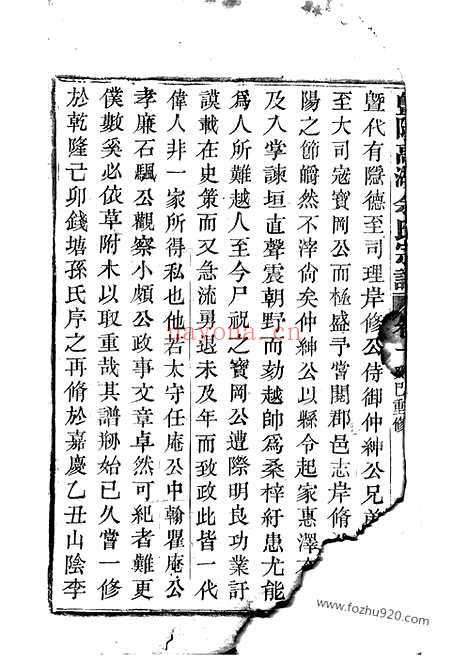 暨陽高湖余氏宗譜
巳重修
暨代有隱德至司理岸修公侍御仲紳公兄弟
至大司寇寶岡公而極盛予嘗閱郡邑志岸脩
陽之節皭然不滓尙矣仲紳公以縣令起家惠澤在
及入掌諫垣直聲震朝野而劾越帥爲桑梓紓患尤能
爲人所難越人至今尸祝之寶岡公遭際明良功業訏
謨載在史策而又急流勇退未及年而致政此皆一代
偉人非一家所得私也他若太守任庵公中翰瞿庵公
孝廉石颿公觀察小頗公政事文章卓然可紀者難更
僕數奚必依草附木以取重哉其譜剏始已久嘗一修
於乾隆己卯錢塘孫氏序之再脩於嘉慶乙丑山陰李
nayona.cn
www.fozhu920.com